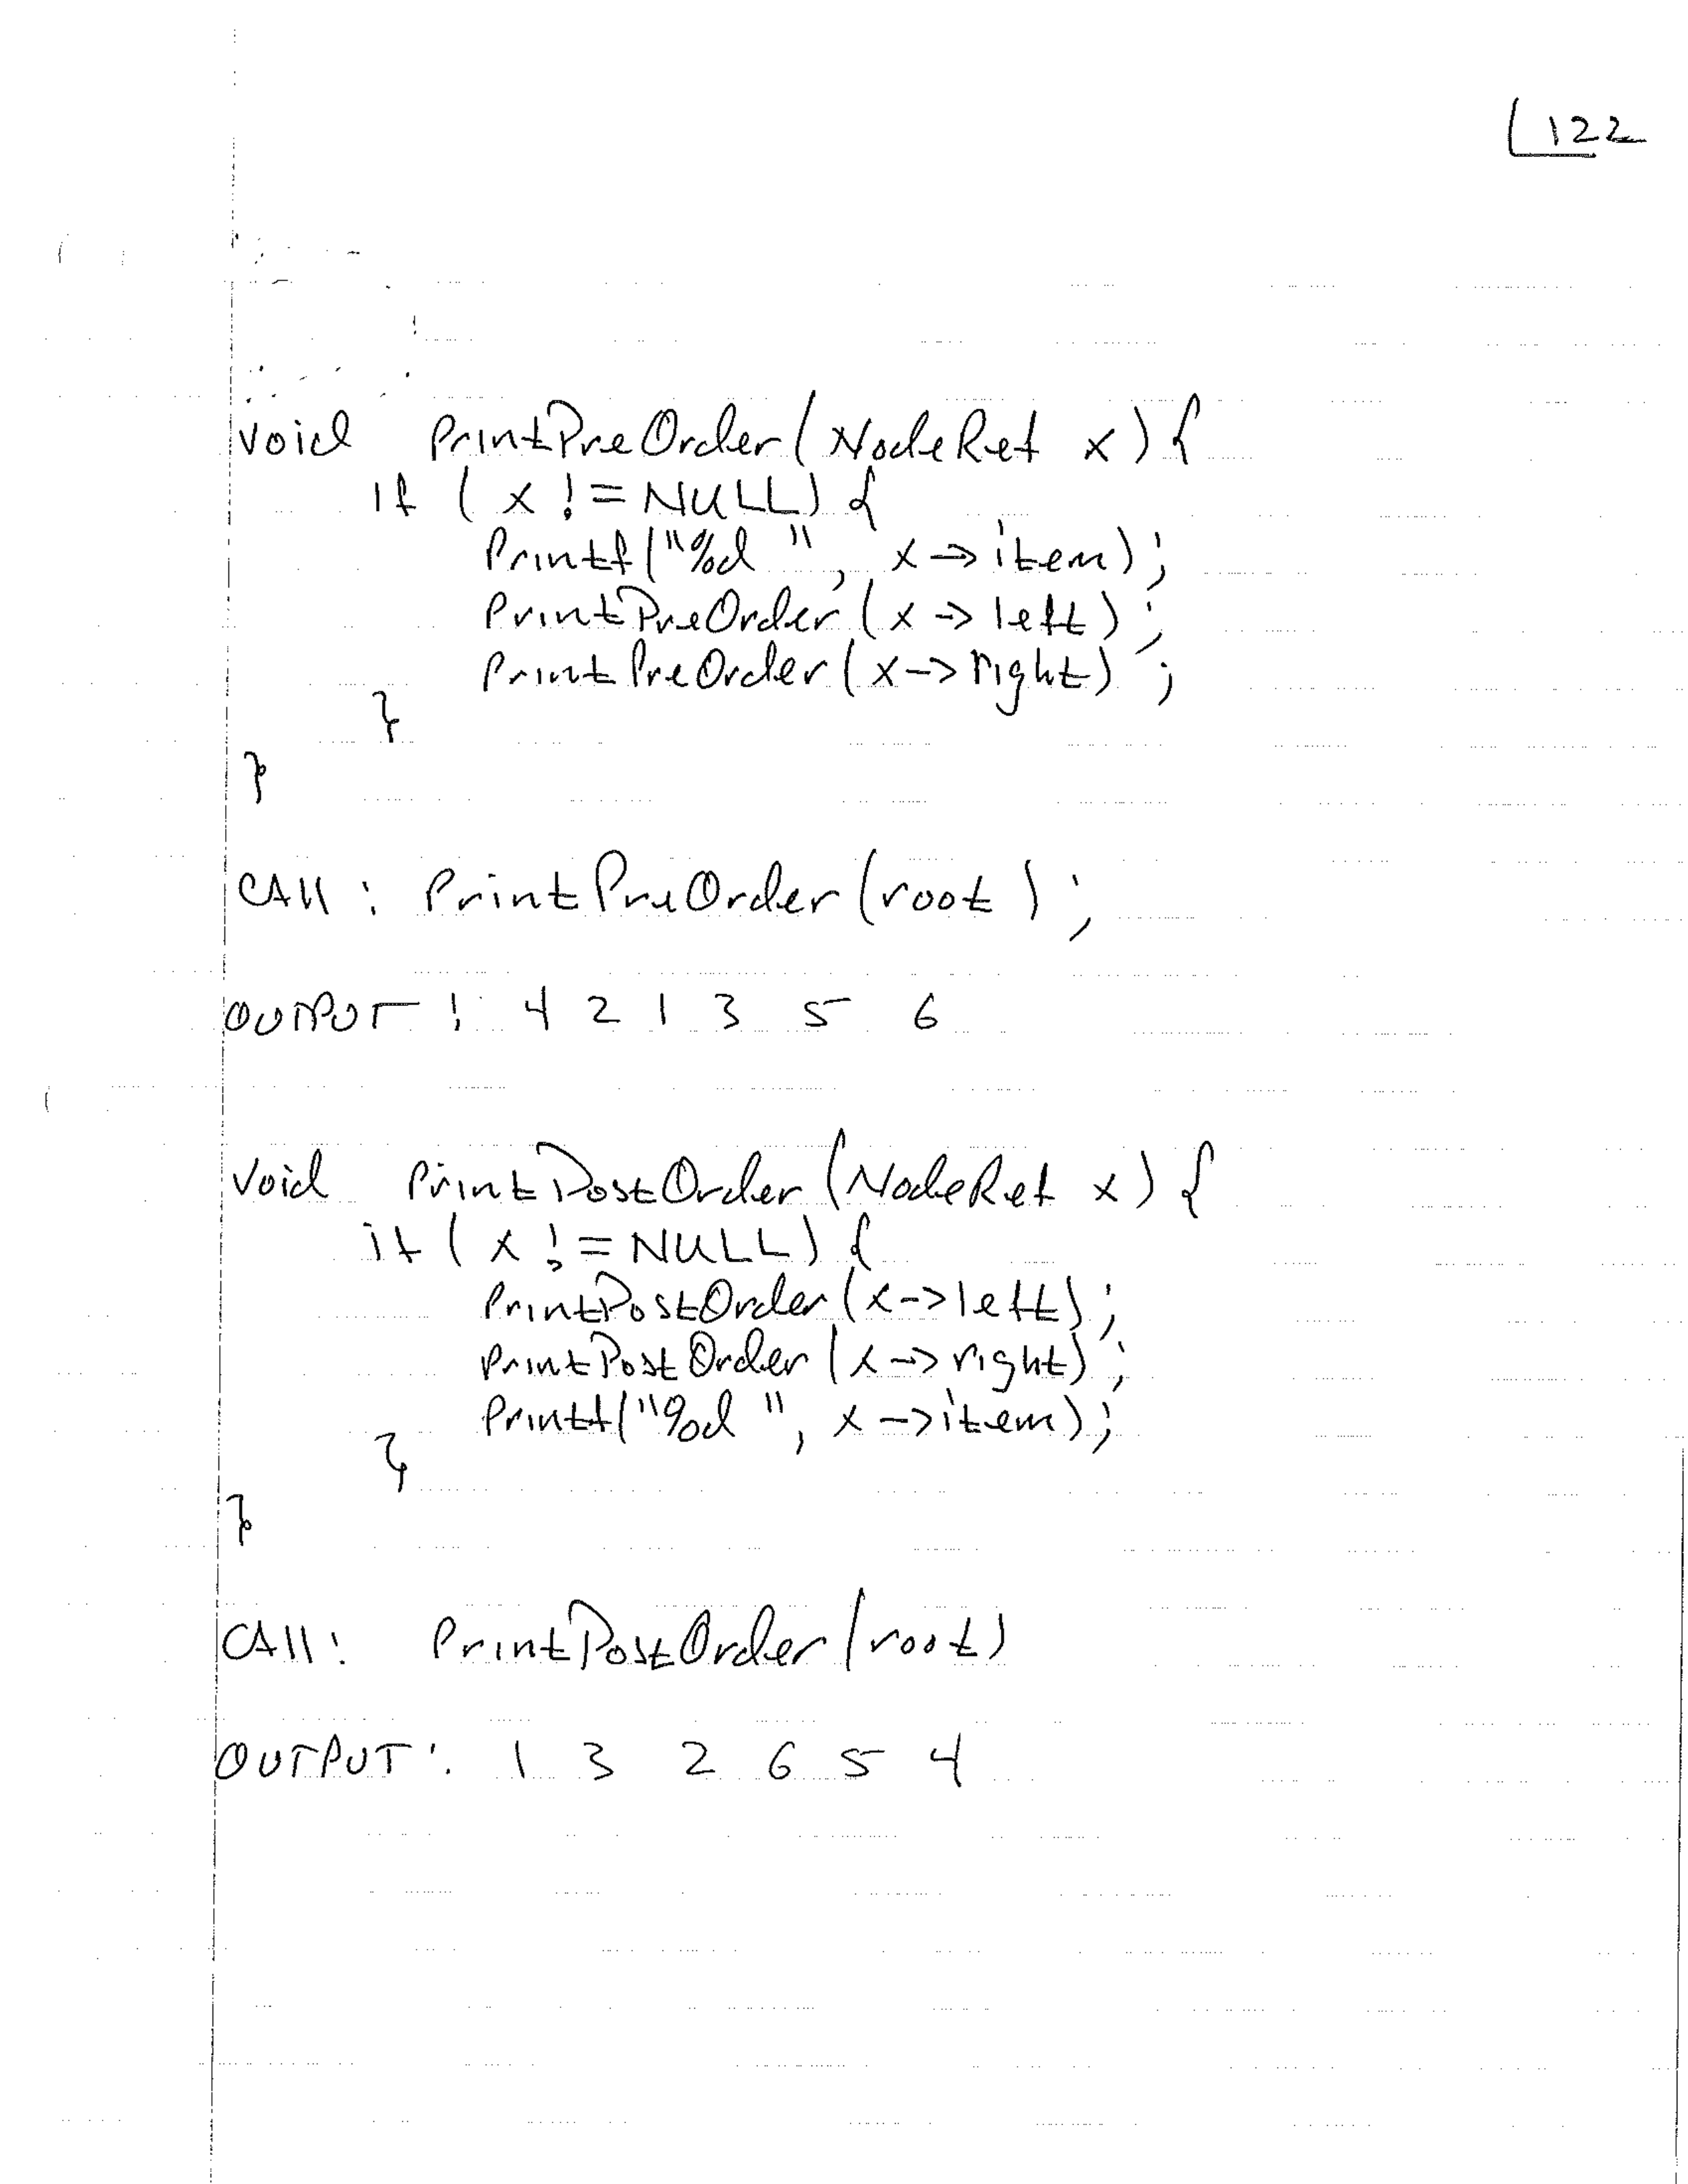 122
void PrintPreOrder(NodeRef x){
if (x != NULL) {
Printf("%d ", x->item);
PrintPreOrder(x->left);
PrintPreOrder(x->right);
}
}
CAll: PrintPreOrder(root);
OUTPUT: 4 2 1 3 5 6
void PrintPostOrder(NodeRef x){
if (x != NULL) {
PrintPostOrder(x->left);
PrintPostOrder(x->right);
Printf("%d ", x->item);
}
}
CAll: PrintPostOrder(root)
OUTPUT: 1 3 2 6 5 4